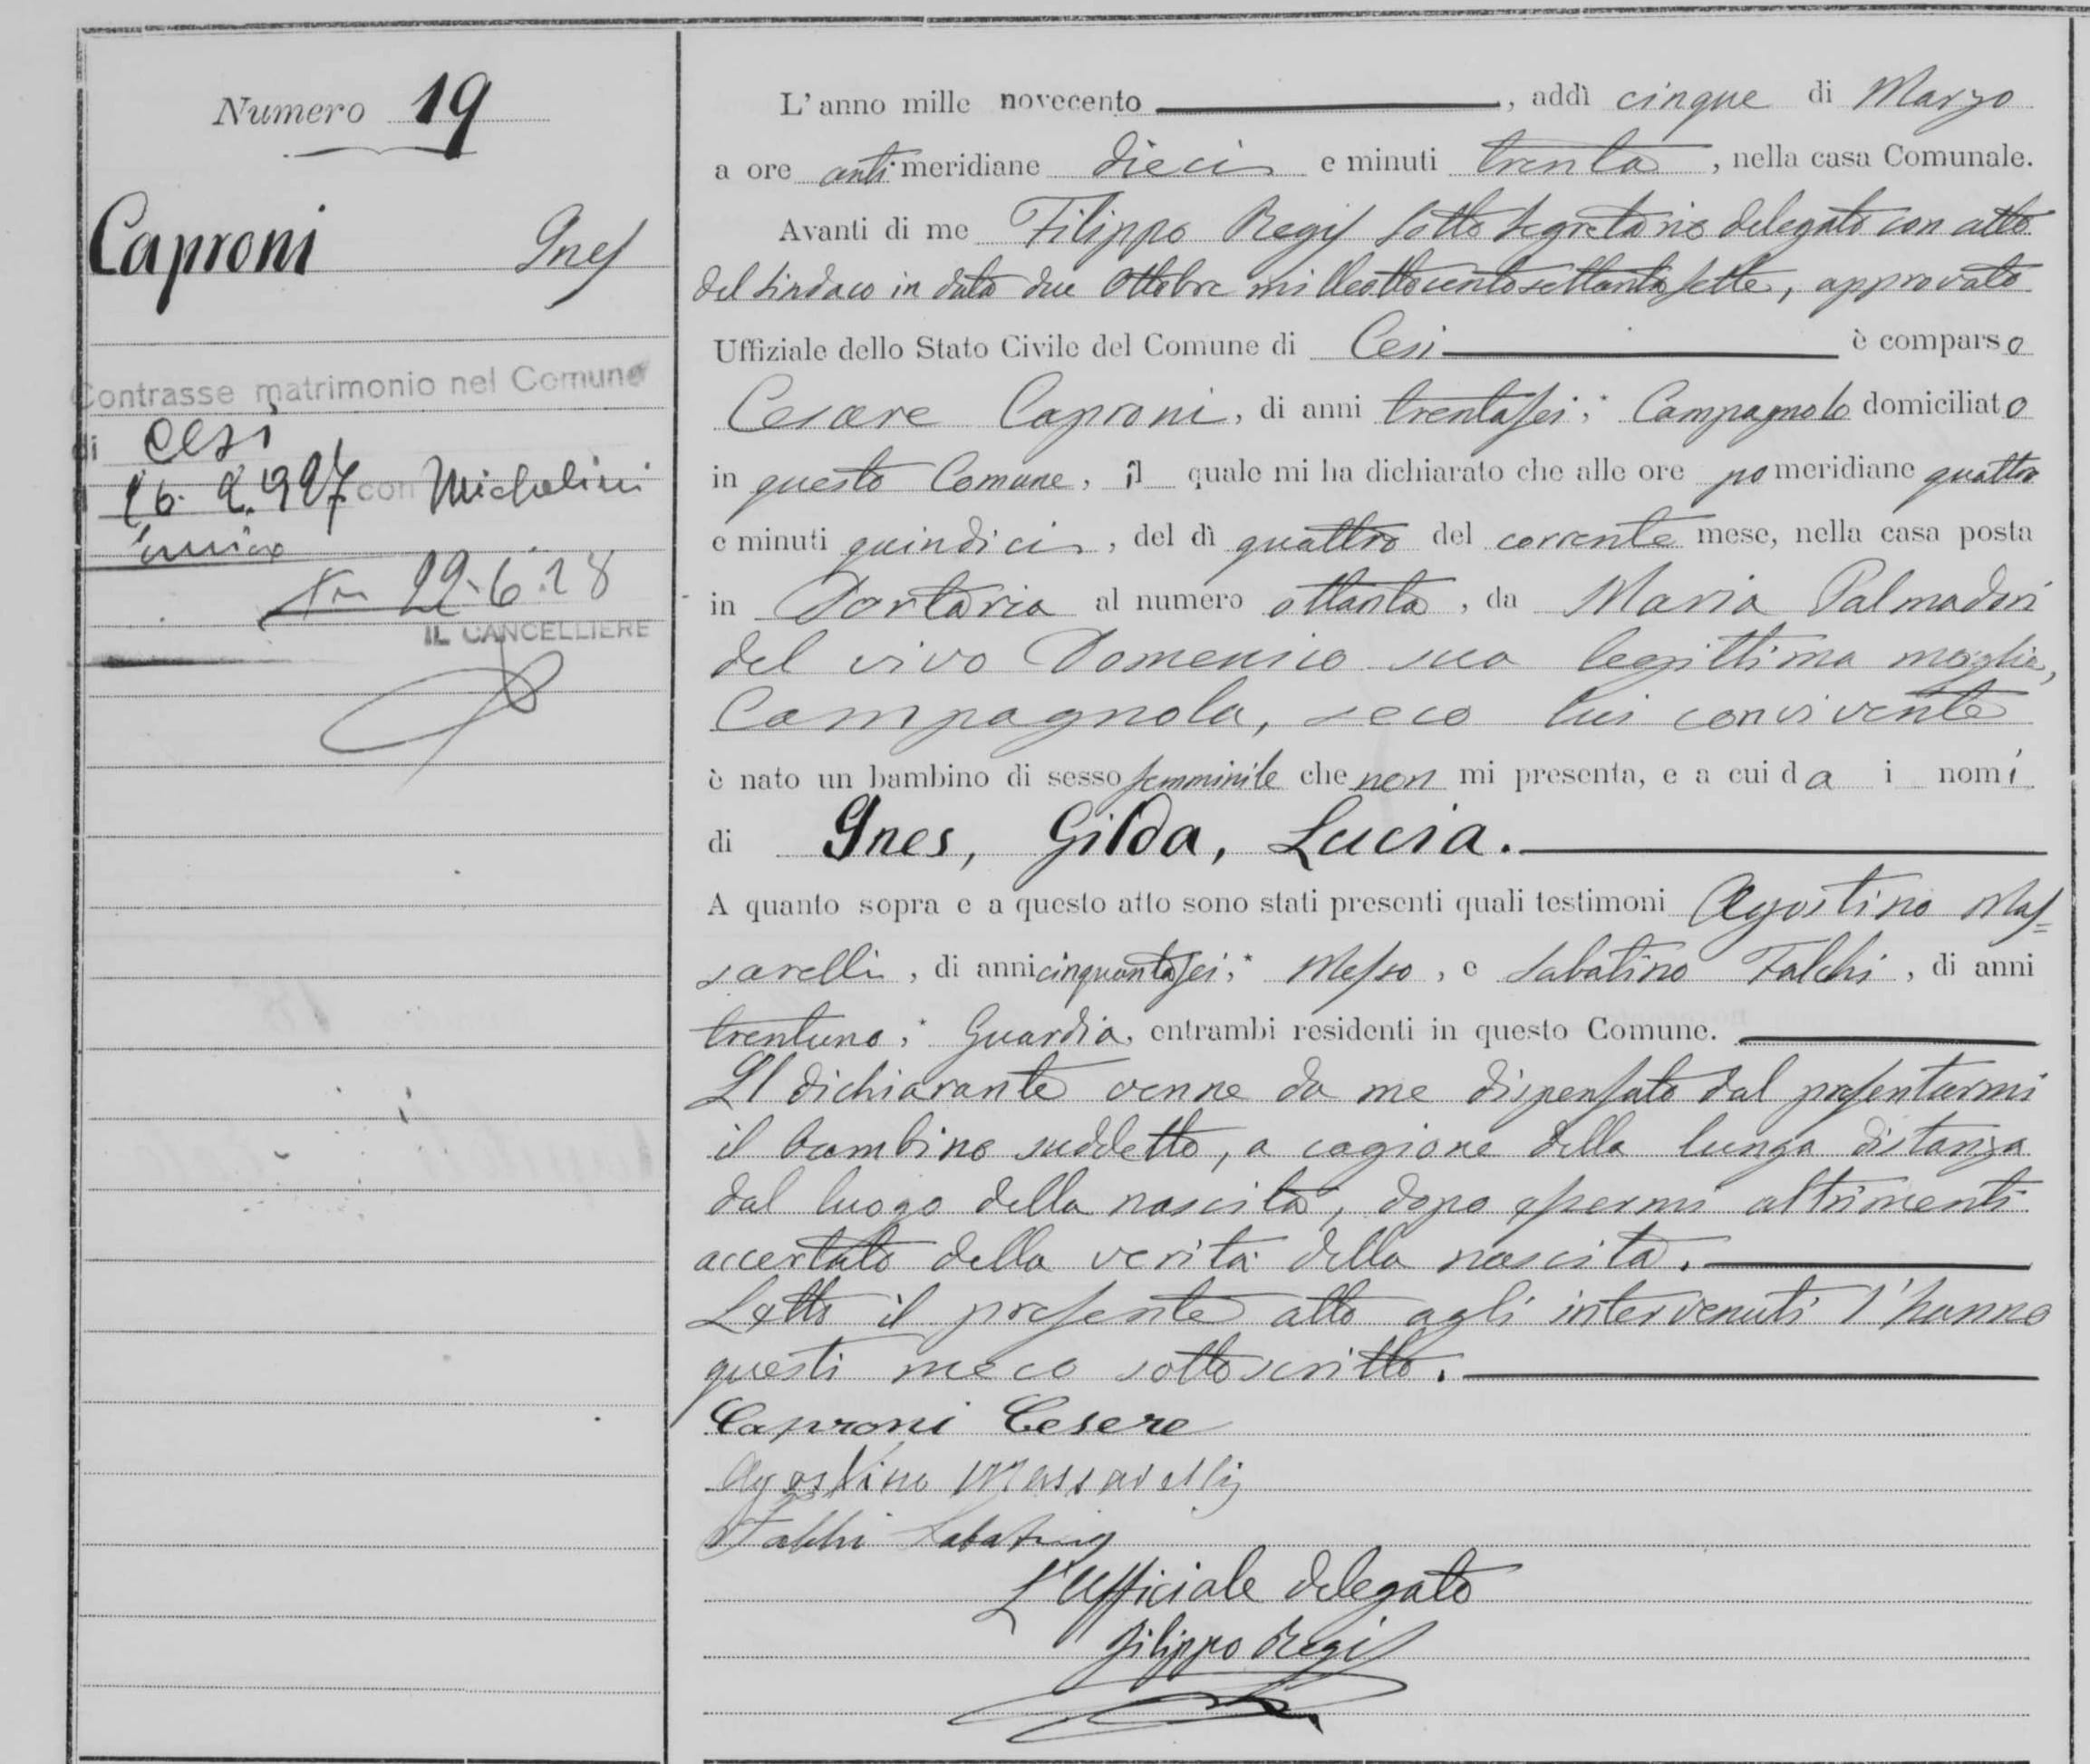 Numero 19
Caproni Ines
Contrasse matrimonio nel Comune
di Cesi
16. 2. 927 con Michelini
22-6-28
IL CANCELLIERE
L'anno mille novecento, addì cinque di Marzo
a ore antimeridiane dieci e minuti trenta, nella casa Comunale.
Avanti di me Filippo Regis sotto Segretario delegato con atto
del Sindaco in data due Ottobre milleottocentosettantasette, approvato
Uffiziale dello Stato Civile del Comune di Cesi è comparso
Cesare Caproni, di anni trentasei, Campagnolo domiciliato
in questo Comune, il quale mi ha dichiarato che alle ore pomeridiane quattro
e minuti quindici, del dì quattro del corrente mese, nella casa posta
in Portaria al numero ottanta, da Maria Palmadori
del vivo Domenico sua legittima moglie,
Campagnola, seco lui convivente
è nato un bambino di sesso femminile che non mi presenta, e a cui da i nomi
di Ines, Gilda, Lucia.
A quanto sopra e a questo atto sono stati presenti quali testimoni Agostino Mas=
sarelli, di anni cinquantasei, Messo, e Sabatino Falchi, di anni
trentuno, Guardia, entrambi residenti in questo Comune.
Il dichiarante venne da me dispensato dal presentarmi
il bambino suddetto, a cagione della lunga distanza
dal luogo della nascita, dopo essermi altrimenti
accertato della verità della nascita.
Letto il presente atto agli intervenuti l'hanno
questi meco sottoscritto.
Caproni Cesere
Agostino Massarelli
Falchi Sabatino
L'Ufficiale delegato
Filippo Regis